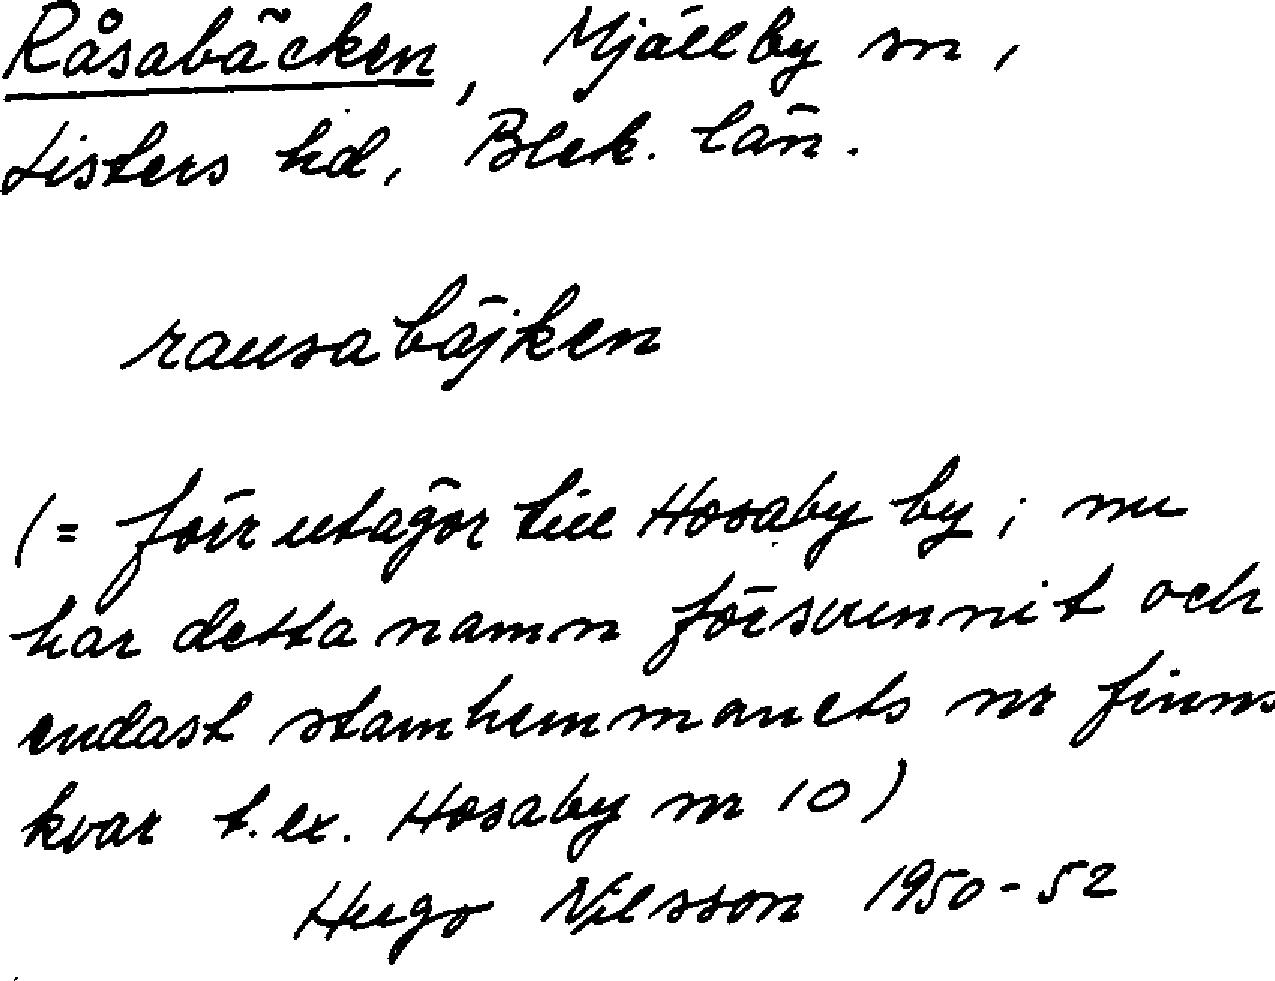 Råsabäcken, Mjällby sn,
Listers hd, Blek. län.
rausabäjken
(= förr utägor till Hosaby by; nu
har detta namn försvunnit och
endast stamhemmanets nr finns
kvar t. ex. Hosaby nr 10)
Hugo Nilsson 1950-52